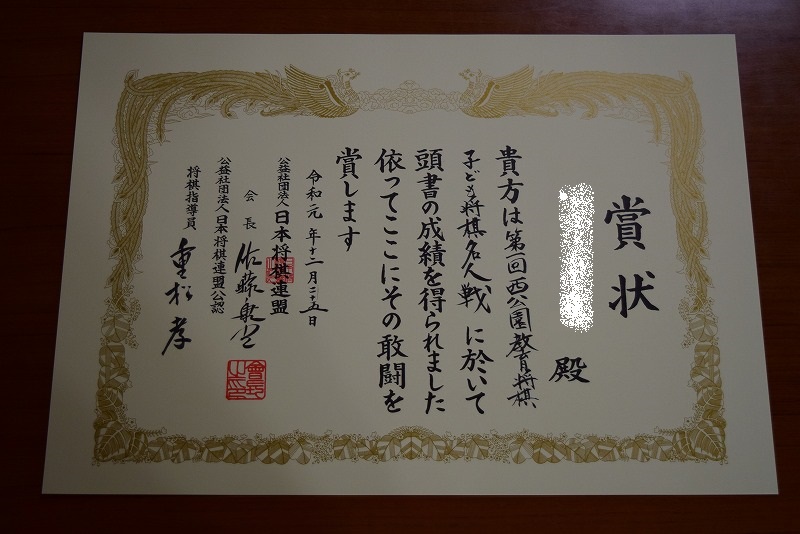 賞状
殿
貴方は第一回西公園教育将棋
子ども将棋名人戦に於いて
頭書の成績を得られました
依ってここにその敢闘を
賞します
令和元年十二月二十五日
公益社団法人日本将棋連盟
会長 佐藤康光
公益社団法人日本将棋連盟公認
将棋指導員 重松孝